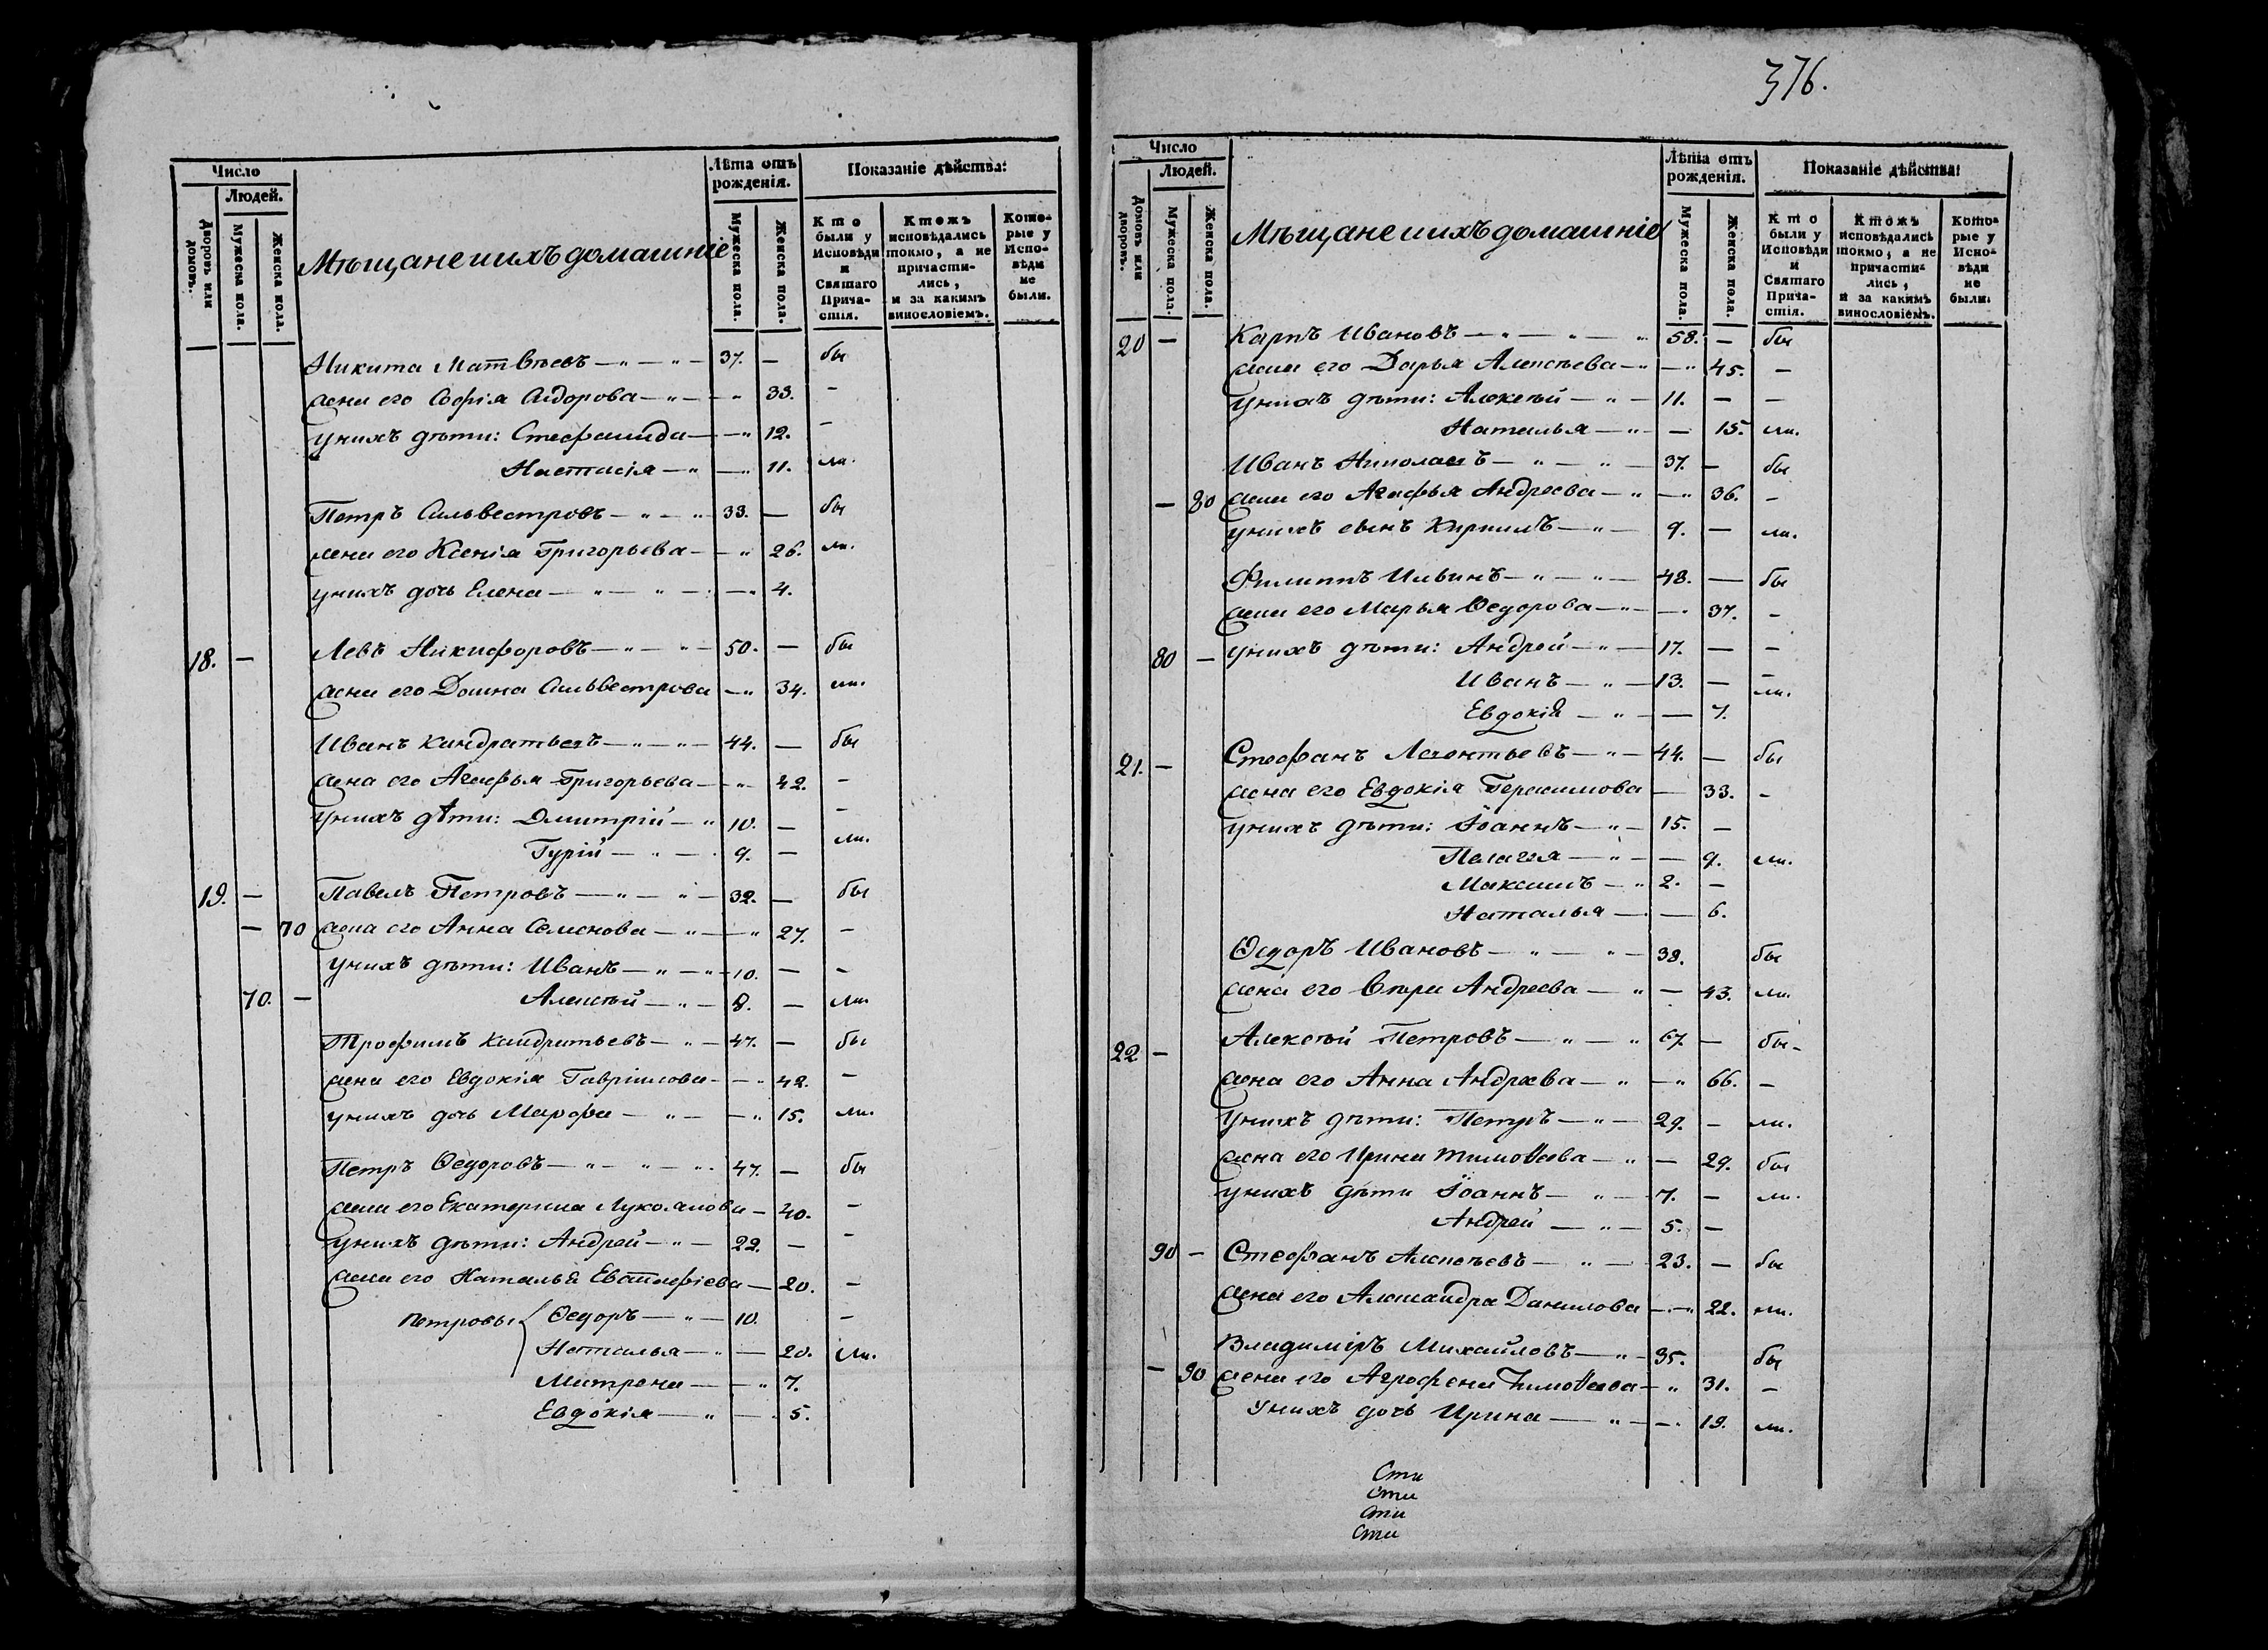 Число
Людей.
Дворовъ или домовъ.
Мужеска пола.
Женска пола.
Мѣщане и ихъ домашніе
Лѣта отъ рожденія.
Мужеска пола.
Женска пола.
Показаніе дѣйства:
Кто были у Исповѣди и Святаго Прича-стія.
Ктожъ исповѣдались токмо, а не причасти-лись, и за какимъ винословіемъ.
Кото-рые у Испо-вѣди не были.
Никита Матвѣевъ — " — " — 37. — бы
жена его Софія Сидорова — " — " 33. —
у нихъ дѣти: Стефанида — — " 12. —
Настасія — " — " 11. ли.
Петръ Сильвестровъ — " — " 33. — бы
жена его Ксенія Григорьева — — " 26. ли.
у нихъ дочь Елена — " — " — — " 4.
18. — Левъ Никифоровъ — " — " — 50. — бы
жена его Домна Сильвестрова — " 34. ли.
Иванъ Кандратьевъ — " — " — 44. — бы
жена его Агафья Григорьева — — " — 42. —
у нихъ дѣти: Дмитрій — " 10. — —
Гурій — " — 9. — ли.
19. — Павелъ Петровъ — " — " — 32. — бы
— 70 жена его Анна Семенова — " — — " 27. —
у нихъ дѣти: Иванъ — " — " — 10. — —
70. — Алексѣй — " — 8. — ли.
Трофимъ Кандратьевъ — " — 47. — бы
жена его Евдокія Гавріилова — — " 42. —
у нихъ дочь Марфа — " — — " 15. ли.
Петръ Ѳедоровъ — " — " — " 47. — бы
жена его Екатерина Лукоянова — 40. —
у нихъ дѣти: Андрей — " — 22. — —
жена его Наталья — 20. —
Петровы { Ѳедоръ — " — 10. —
Наталья — " — 20. ли.
Матрена — — " 7.
Евдокія — " — " 5.
376.
Число
Людей.
Домовъ или дворовъ.
Мужеска пола.
Женска пола.
Мѣщане и ихъ домашніе
Лѣта отъ рожденія.
Мужеска пола.
Женска пола.
Показаніе дѣйства:
Кто были у Исповѣди и Святаго Прича-стія.
Ктожъ исповѣдались токмо, а не причасти-лись, и за какимъ винословіемъ.
Кото-рые у Испо-вѣди не были.
20 — Карпъ Ивановъ — " — " — " 58. — бы
жена его Дарья Алексѣева — " — " 45. —
у нихъ дѣти: Алексѣй — " — 11. — —
Наталья — " — — 15. ли.
Иванъ Николаевъ — " — " — 37. — бы
— 80 жена его Агафья Андреева — " — " 36. —
у нихъ сынъ Кирилъ — " — 9. — ли.
Филиппъ Ильинъ — " — " — 48. — бы
жена его Марья Ѳедорова — " — — " 37. —
80 — у нихъ дѣти: Андрей — " — 17. — —
Иванъ — " — 13. — —
Евдокія — " — — 7. ли.
21. — Стефанъ Леонтьевъ — " — 44. — бы
жена его Евдокія Герасимова — 33. —
у нихъ дѣти: Іоаннъ — " — 15. —
Пелагея — " — — 9. ли.
Максимъ — " 2. —
Наталья — — 6.
Ѳедоръ Ивановъ — " — " — 38. бы
жена его Вѣра Андреева — " — 43. ли.
22 — Алексѣй Петровъ — " — " 67. — бы —
жена его Анна Андреева — " — " 66. —
У нихъ дѣти: Петръ — " — 29. — ли.
жена его Ирина Тимоѳеева — " — 29. бы
у нихъ дѣти Іоаннъ — " — 7. — ли.
Андрей — " — 5. —
90 — Стефанъ Алексѣевъ — " — 23. — бы
жена его Александра Данилова — " 22. ли.
Владиміръ Михайловъ — " — 35. бы
— 90 жена его Агрофена Тимоѳеева — " 31. —
У нихъ дочь Ирина — " — — " 19. ли.
Сти
Сти
Сти
Сти